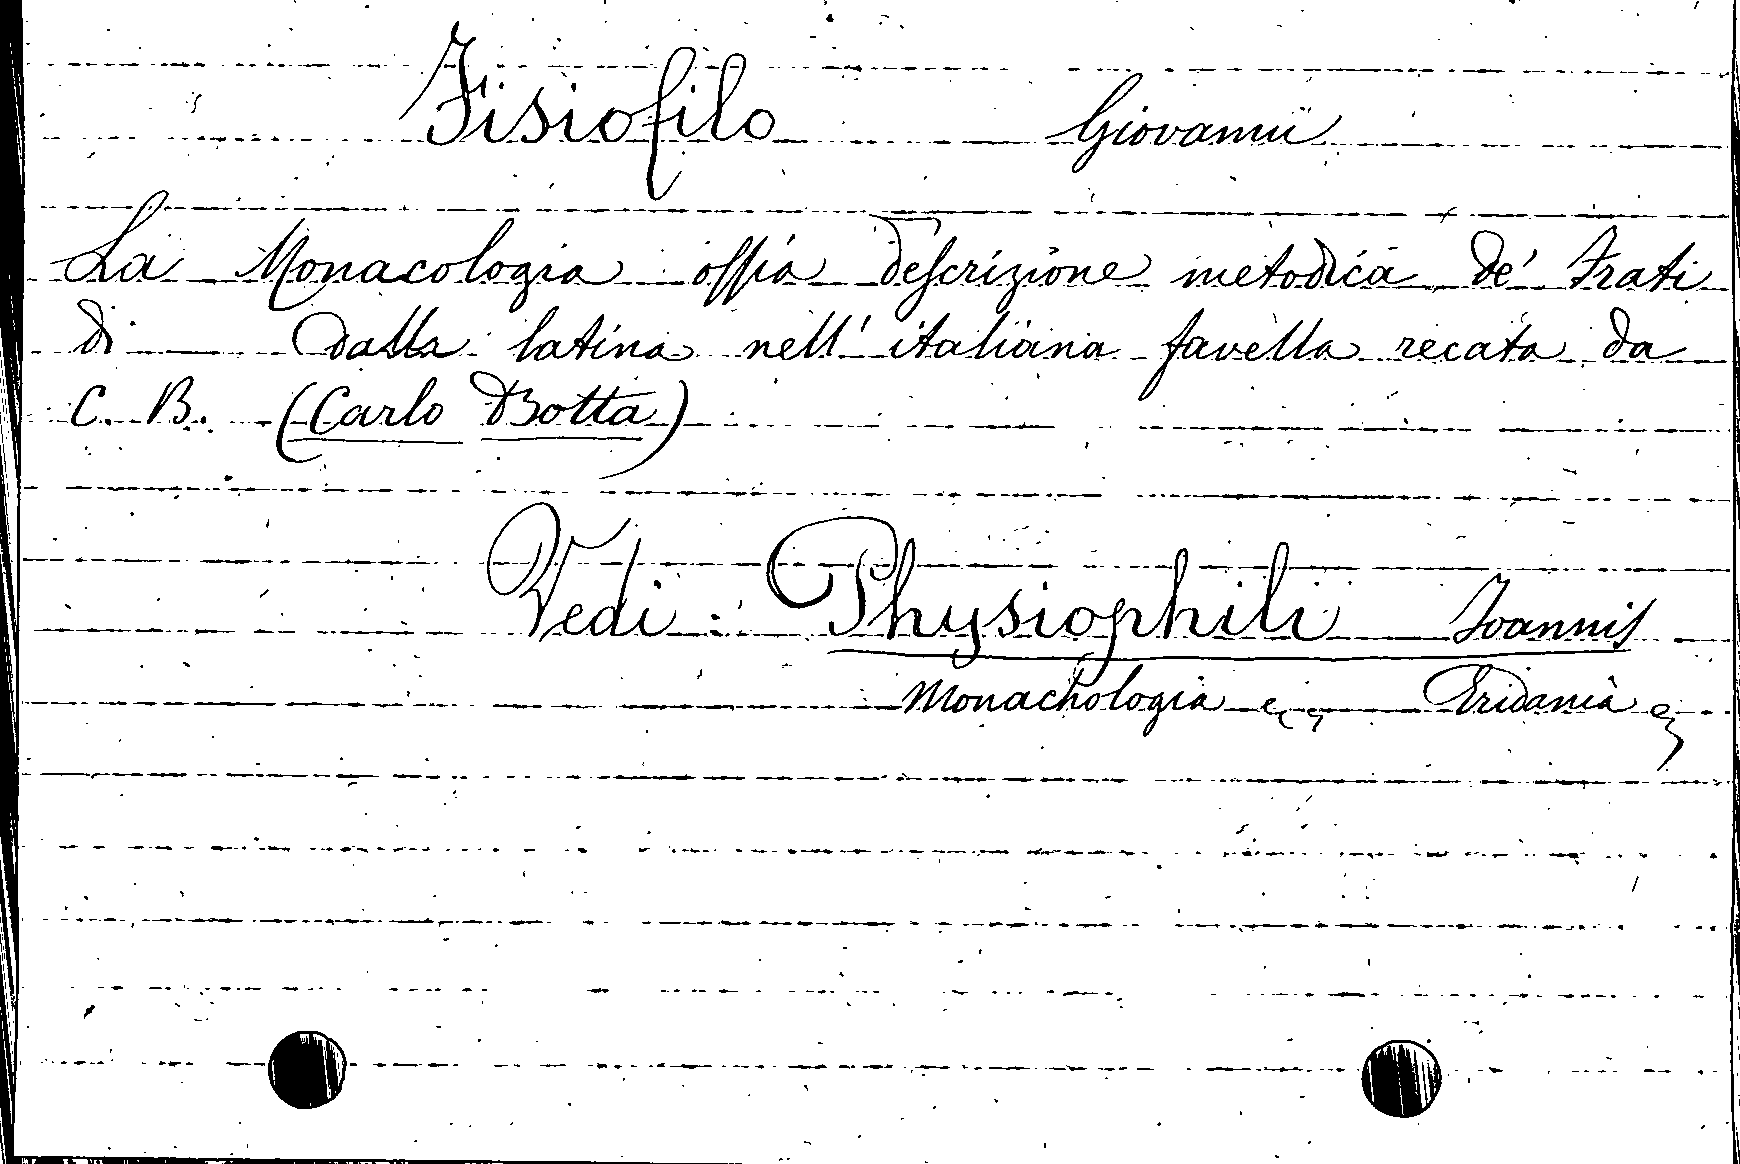 Fisiofilo Giovanni
La Monacologia ossia descrizione metodica de' Frati
di — dalla latina nell' italiana favella recata da
C. B. (Carlo Botta)
Vedi: Physiophili Joannis
Monachologia Eridania